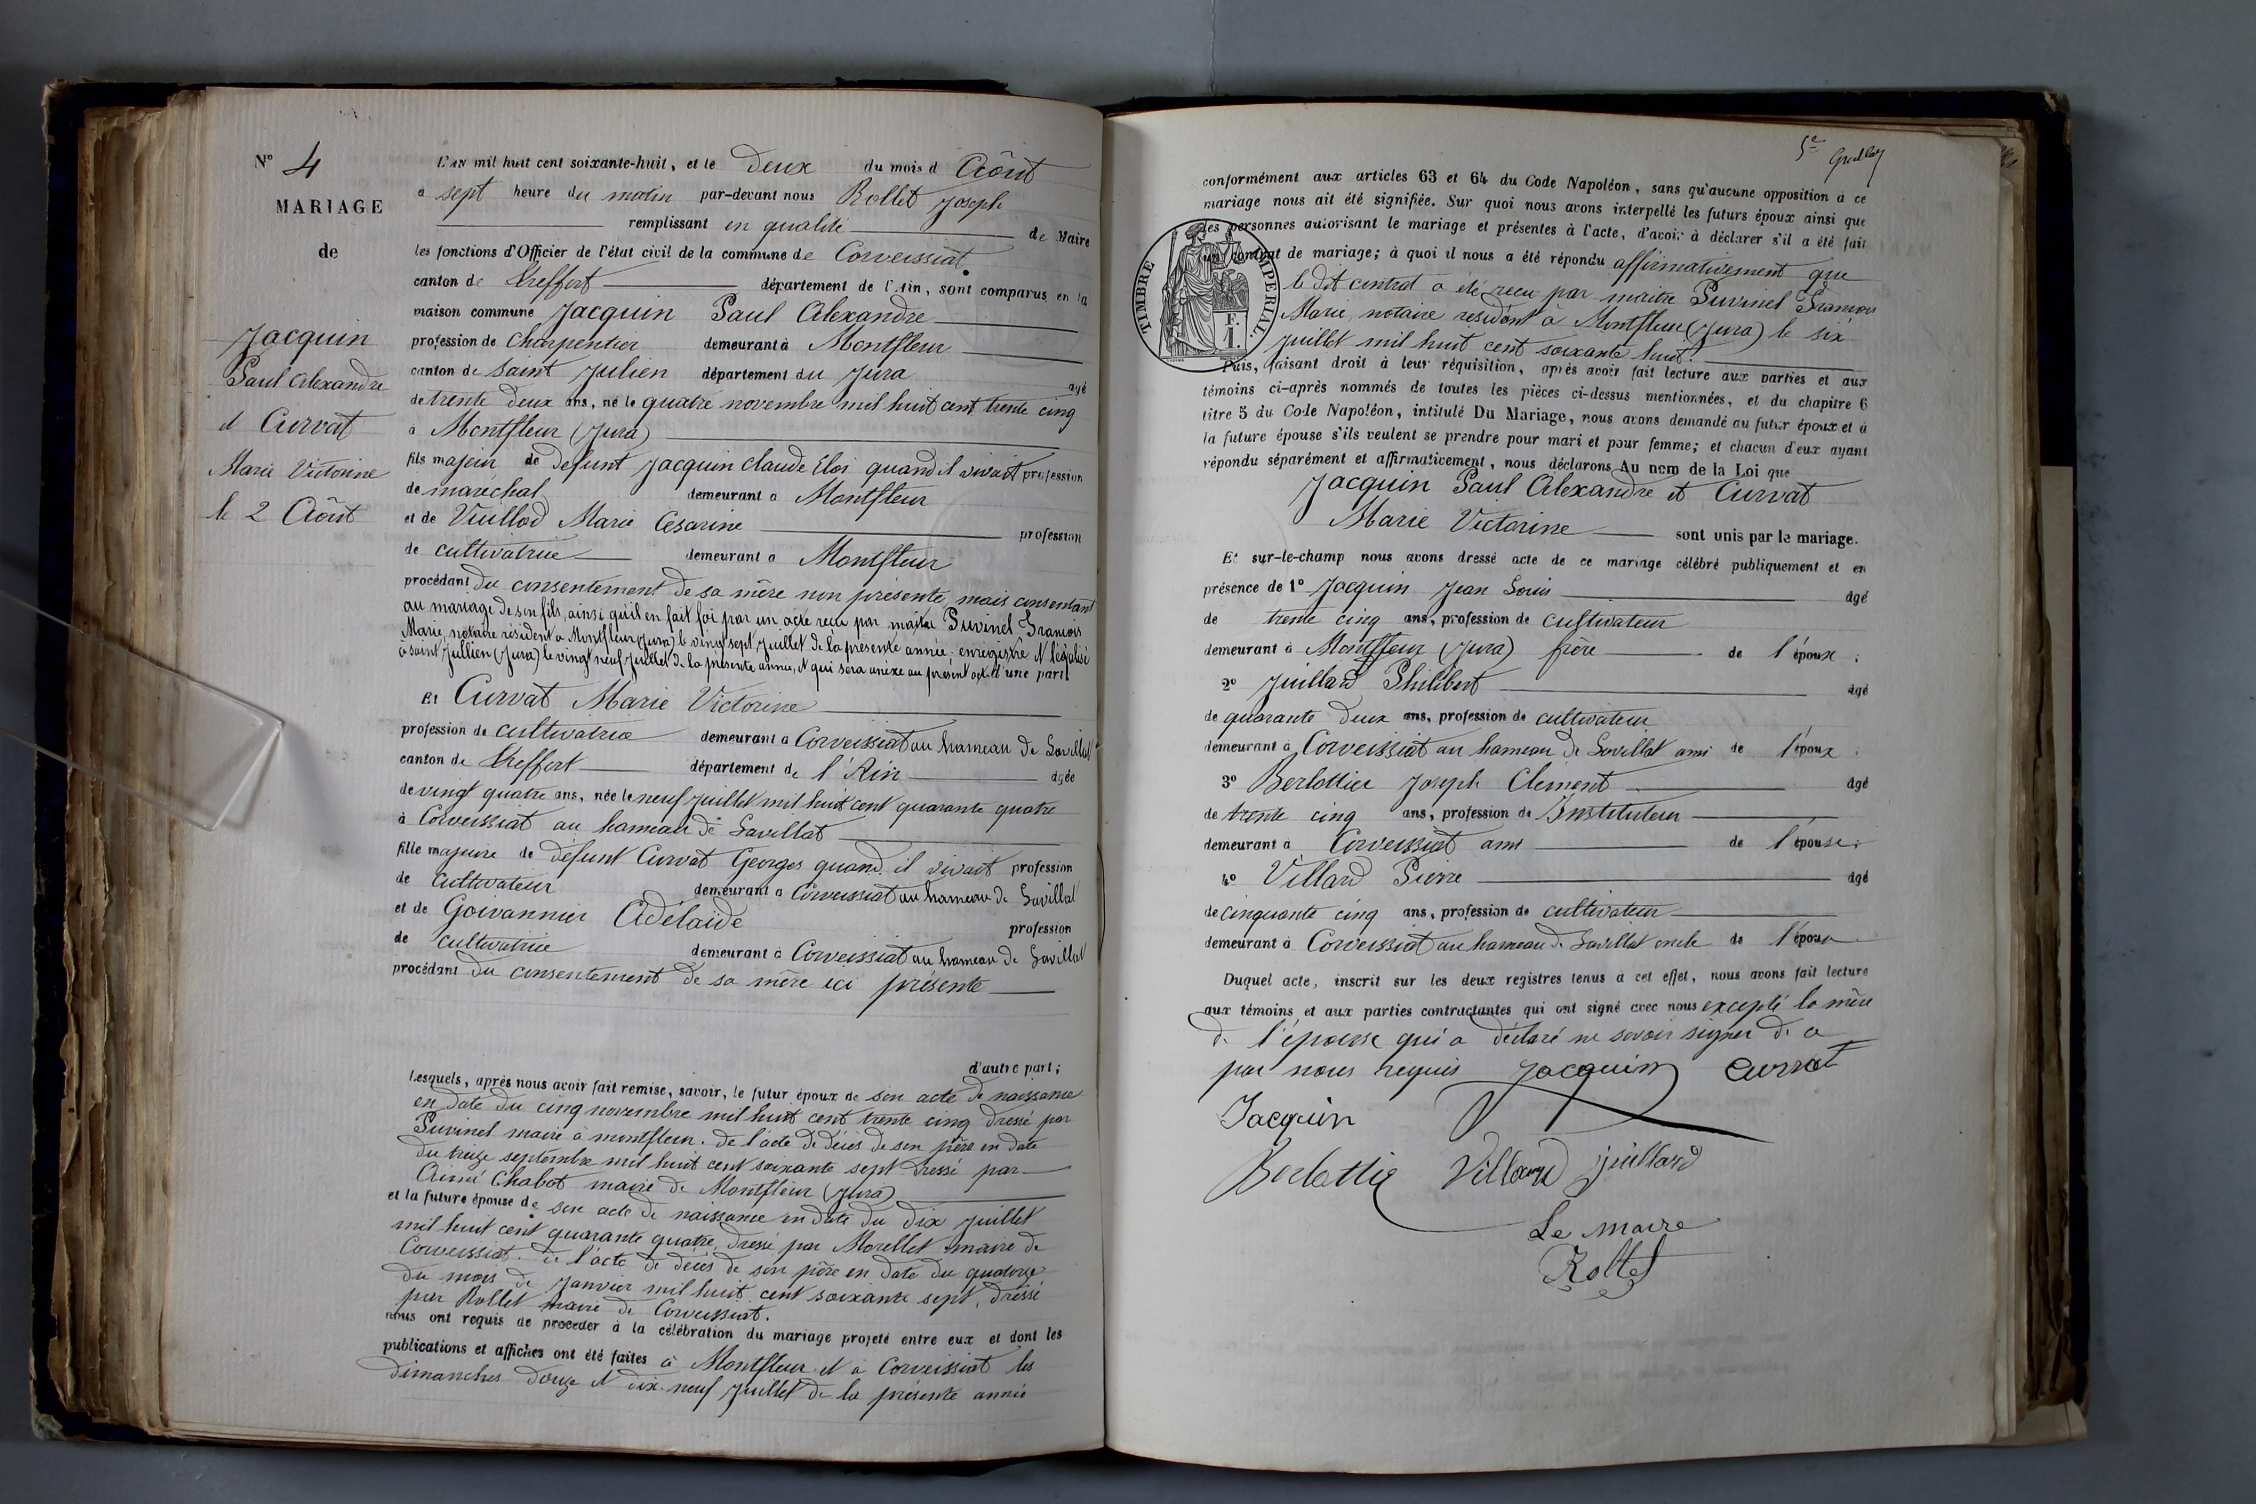 N° 4
MARIAGE
de
Jacquin
Paul Alexandre
et Curvat
Marie Victorine
le 2 Août
L'An mil huit cent soixante-huit, et le deux du mois d Août
a sept heure du matin par-devant nous Rollet Joseph
remplissant en qualité de Maire
les fonctions d'Officier de l'état civil de la commune de Corveissiat
canton de Treffort département de l'Ain, sont comparus en la
maison commune Jacquin Paul Alexandre
profession de Charpentier demeurant à Montfleur
canton de Saint Julien département du Jura agé
de trente deux ans, né le quatre novembre mil huit cent trente cinq
a Montfleur (Jura)
fils majeur de defunt Jacquin Claude Eloi quand il vivait profession
de maréchal demeurant a Montfleur
et de Vuillod Marie Cesarine profession
de cultivatrice demeurant a Montfleur
procédant du consentement de sa mère non présente mais consentant
au mariage de son fils, ainsi qu'il en fait foi par un acte recu par maitre Puvinel Francois
Marie, notaire résident a Montfleur (Jura) le vingt sept Juillet de la présente année enregistré et légalisé
a saint Jullien (Jura) le vingt neuf Juillet de la présente année, et qui sera anéxé au présent act. d'une part
Et Curvat Marie Victorine
profession de cultivatrice demeurant a Corveissiat au hameau de Lavillat
canton de Treffort département de l'Ain agée
de vingt quatre ans, née le neuf Juillet mil huit cent quarante quatre
à Corveissiat au hameau de Lavillat
fille majeure de defunt Curvat Georges quand il vivait profession
de cultivateur demeurant a Corveissiat au hameau de Lavillat
et de Goivannier Adélaïde profession
de cultivatrice demeurant à Corveissiat au hameau de Lavillat
procédant du consentement de sa mère ici présente
d'autre part;
Lesquels, après nous avoir fait remise, savoir, le futur époux de son acte de naissance
en date du cinq novembre mil huit cent trente cinq dressé par
Puvinel maire à montfleur. de l'acte de décès de son père en date
du treize septembre mil huit cent soixante sept dressé par
Aimé Chabot maire de Montfleur (Jura)
et la future épouse de son acte de naissance en date du dix Juillet
mil huit cent quarante quatre, dressé par Morellet maire de
Corveissiat. de l'acte de décès de son père en date du quatorze
du mois de Janvier mil huit cent soixante sept, dressé
par Rollet maire de Corveissiat.
nous ont requis de procéder à la célébration du mariage projeté entre eux et dont les
publications et affiches ont été faites à Montfleur et à Corveissiat les
dimanches douze et dix-neuf Juillet de la présente année
5e
conformément aux articles 63 et 64 du Code Napoléon, sans qu'aucune opposition a ce
mariage nous ait été signifiée. Sur quoi nous avons interpellé les futurs époux ainsi que
les personnes autorisant le mariage et présentes à l'acte, d'avoir à déclarer s'il a été fait
un contrat de mariage; à quoi il nous a été répondu affirmativement que
TIMBRE IMPÉRIAL
E. I.
le dit contrat a été reçu par maitre Puvinel François
Marie, notaire résidant à Montfleur (Jura) le six
Juillet mil huit cent soixante huit.
Puis, faisant droit à leur réquisition, après avoir fait lecture aux parties et aux
témoins ci-après nommés de toutes les pièces ci-dessus mentionnées, et du chapitre 6
titre 5 du Code Napoléon, intitulé Du Mariage, nous avons demandé au futur époux et à
la future épouse s'ils veulent se prendre pour mari et pour femme; et chacun d'eux ayant
répondu séparément et affirmativement, nous déclarons Au nom de la Loi que
Jacquin Paul Alexandre et Curvat
Marie Victorine sont unis par le mariage.
Et sur-le-champ nous avons dressé acte de ce mariage célébré publiquement et en
présence de 1° Jacquin Jean Louis âgé
de trente cinq ans, profession de cultivateur
demeurant à Montfleur (Jura) frère de l'époux;
2° Juillard Philibert âgé
de quarante deux ans, profession de cultivateur
demeurant à Corveissiat au hameau de Lavillat ami de l'époux
3° Berlottier Joseph Clement âgé
de trente cinq ans, profession de Instituteur
demeurant à Corveissiat ami de l'épouse;
4° Villard Pierre âgé
de cinquante cinq ans, profession de cultivateur
demeurant à Corveissiat au hameau de Lavillat oncle de l'épouse
Duquel acte, inscrit sur les deux registres tenus a cet effet, nous avons fait lecture
aux témoins et aux parties contractantes qui ont signé avec nous excepté la mère
de l'épouse qui a déclaré ne savoir signer de ce
par nous requis Jacquin Curvat
Jacquin
Berlottie Villard Juillard
Le maire
Rollet